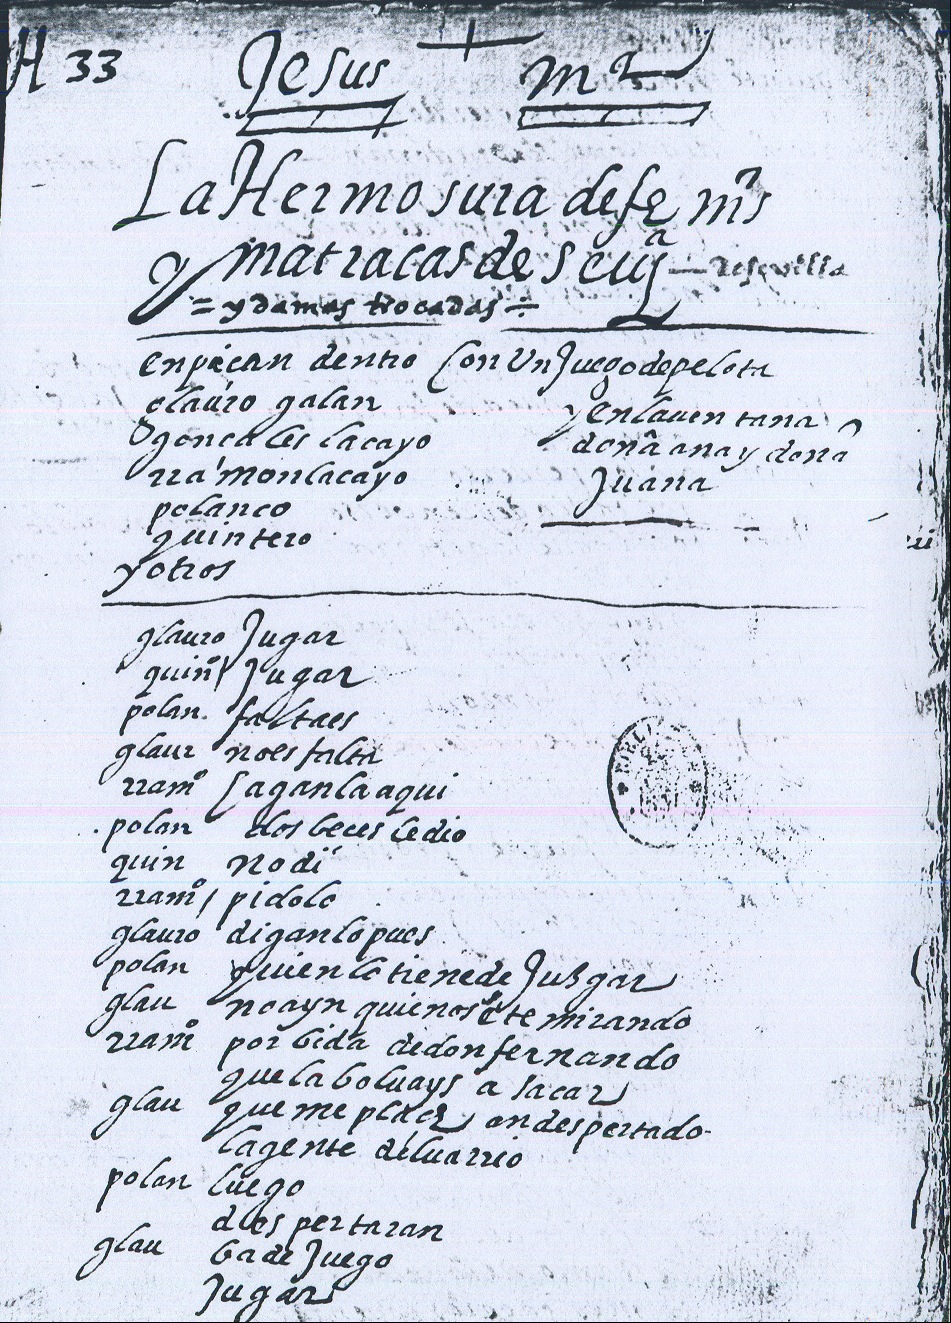 H 33
Jesus + mª
La Hermosura de fez, mºs
y matracas de seuª — de sevilla
= y damas trocadas ÷
enpiecan dentro con Un Juego de pelota
glauro galan
gonçales lacayo
rramon lacayo
polanco
quintero
y otros
y en la uentana
doña ana y doña
Juana
glauro Jugar
quinº Jugar
polan. falta es
glaur no es falta
rramº saganla aqui
polan dos beces le dio
quin no di
rramº / pidolo
glauro diganlo pues
polan quien lo tiene de Jusgar
glau no ayn quien os este mirando
rramº por bida de don fernando
que la boluays a sacar
glau que me place an despertado
la gente del uarrio
polan luego
despertaran
glau ba de Juego
Jugar